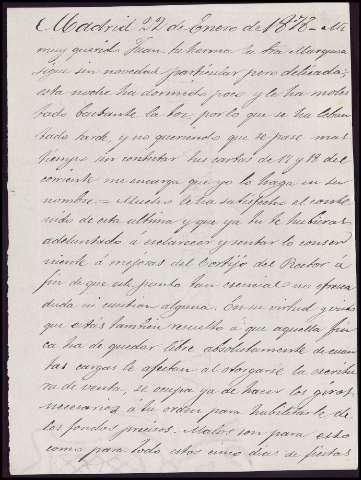 Madrid 22 de Enero de 1878 = Mi
muy querido Juan, tu herma la tia Marquesa
sigue sin novedad particular pero delicada;
esta noche ha dormido poco y le ha moles
tado bastante la tos, por lo que se ha levan
tado tarde, y no queriendo que se pase mas
tiempo sin contestar tus cartas de 17 y 18 del
corriente me encarga que yo lo haga en su
nombre. = Mucho le ha satisfecho el conte
nido de esta ultima y que ya tu te hubieras
adelantado á esclarecer y sentar lo conser
niente á mejoras del Cortijo del Rector á
fin de que un punto tan esencial no ofrezca
duda ni cuestion alguna. En su virtud y visto
que estás tambien resuelto á que aquella fin
ca ha de quedar libre absolutamente de cuan
tas cargas le afectan al otorgarse la escritu
ra de venta, se ocupa ya de hacer los giros
necesarios á tu orden para habilitarte de
los fondos precisos. Malos son para esto
como para todo estos cinco dias de fiestas